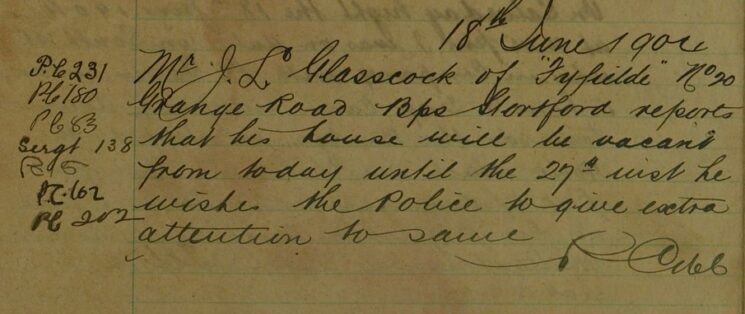 18th June 1904
P.C 231
P.C 180
P.C 83
Sergt 138
P.C 162
P.C 202
Mr J. L. Glasscock of "Fyfields" No 20
Grange Road Bps Stortford reports
that his house will be vacant
from today until the 27th inst he
wishes the Police to give extra
attention to same
Cobb